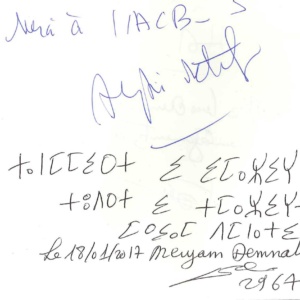 Merci à l'ACB
ⵜⴰⵏⵎⵎⵉⵔⵜ ⵉ ⵉⵎⴰⵣⵉⵖ
ⵜⵓⴷⵔⵜ ⵉ ⵜⵎⴰⵣⵉⵖⵜ
ⵎⵔⵉⴰⵎ ⴷⵎⵏⴰⵜⵉ
Le 18/01/2017 Meryam Demnat
2967